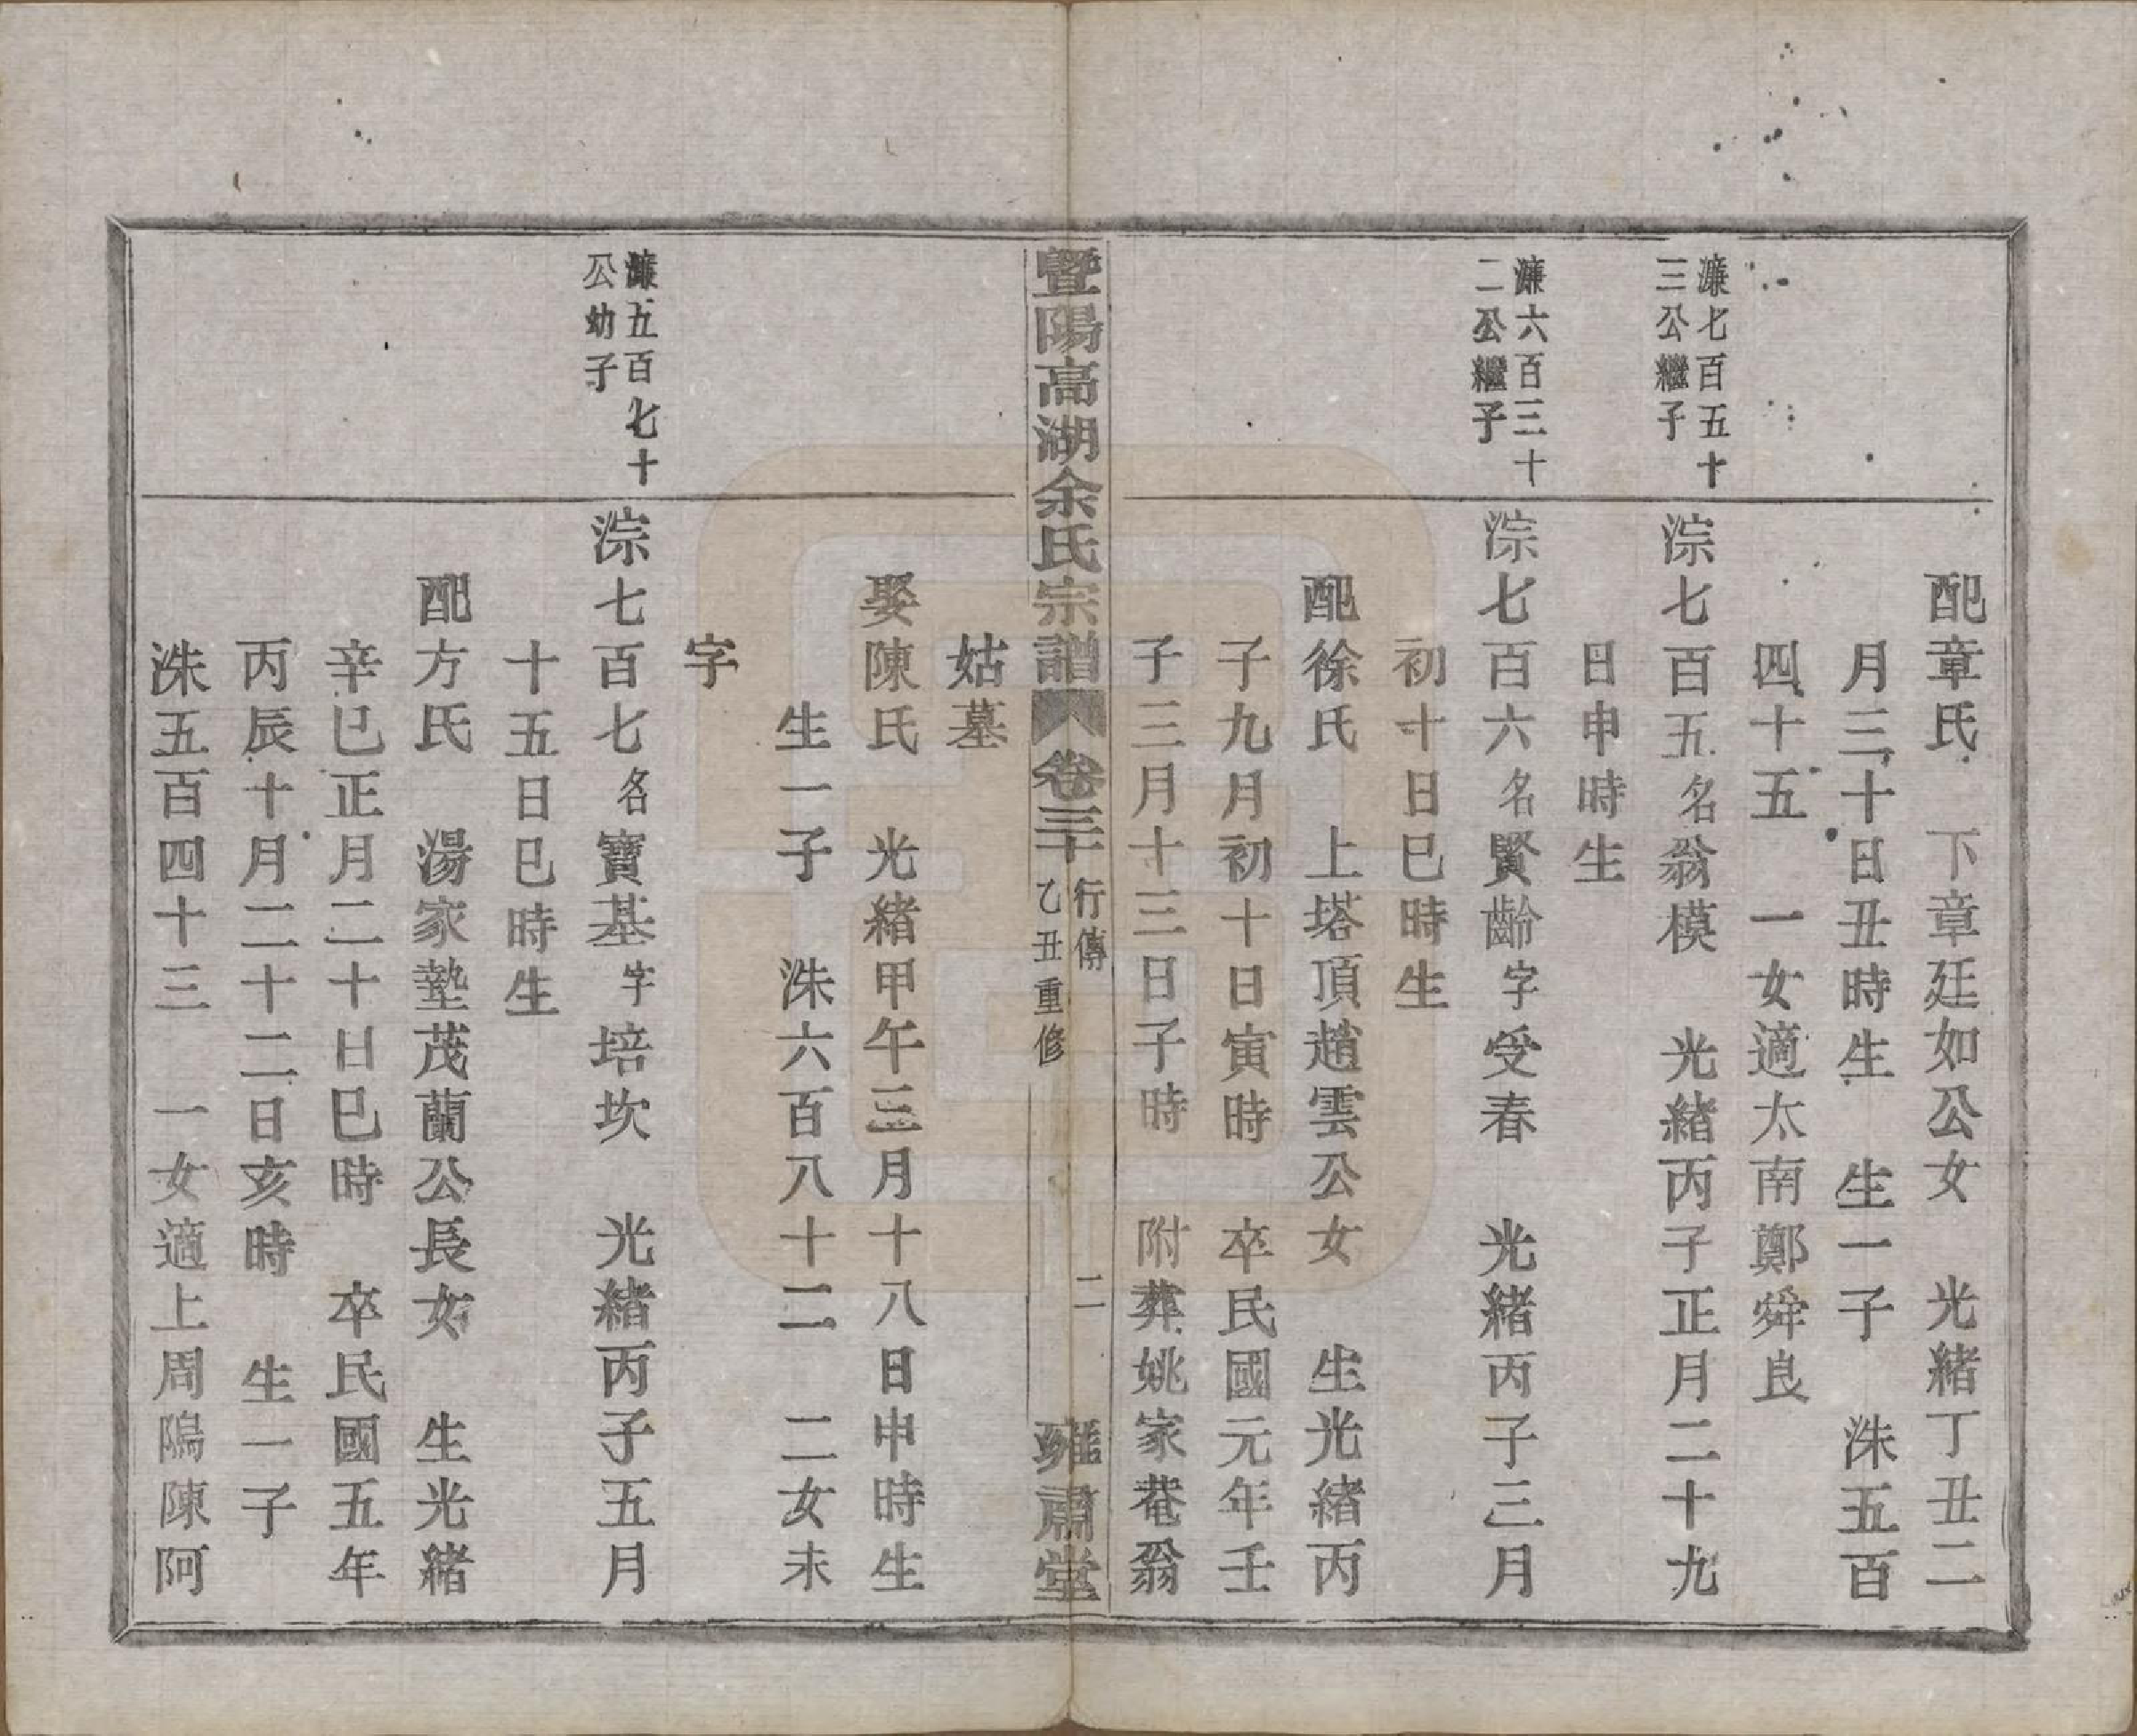 配章氏　下章廷如公女　光緒丁丑二
月三十日丑時生　生一子　洙五百
四十五　一女適太南鄭舜良
濂七百五十
三公繼子
淙七百五名翁模　光緒丙子正月二十九
日申時生
濂六百三十
二公繼子
淙七百六名賢齡字受春　光緒丙子三月
初十日巳時生
配徐氏　上塔頂趙雲公女　生光緒丙
子九月初十日寅時　卒民國元年壬
子三月十三日子時　附葬姚家菴翁
暨陽高湖余氏宗譜　卷三十　行傳
乙丑重修　二　雍肅堂
姑墓
娶陳氏　光緒甲午三月十八日申時生
生一子　洙六百八十二　二女未
字
濂五百七十
公幼子
淙七百七名寶基字培坎　光緒丙子五月
十五日巳時生
配方氏　湯家墊茂蘭公長女　生光緒
辛巳正月二十日巳時　卒民國五年
丙辰十月二十二日亥時　生一子
洙五百四十三　一女適上周隖陳阿